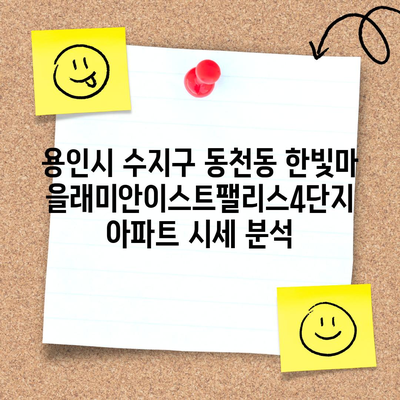 용인시 수지구 동천동 한빛마
을래미안이스트팰리스4단지
아파트 시세 분석